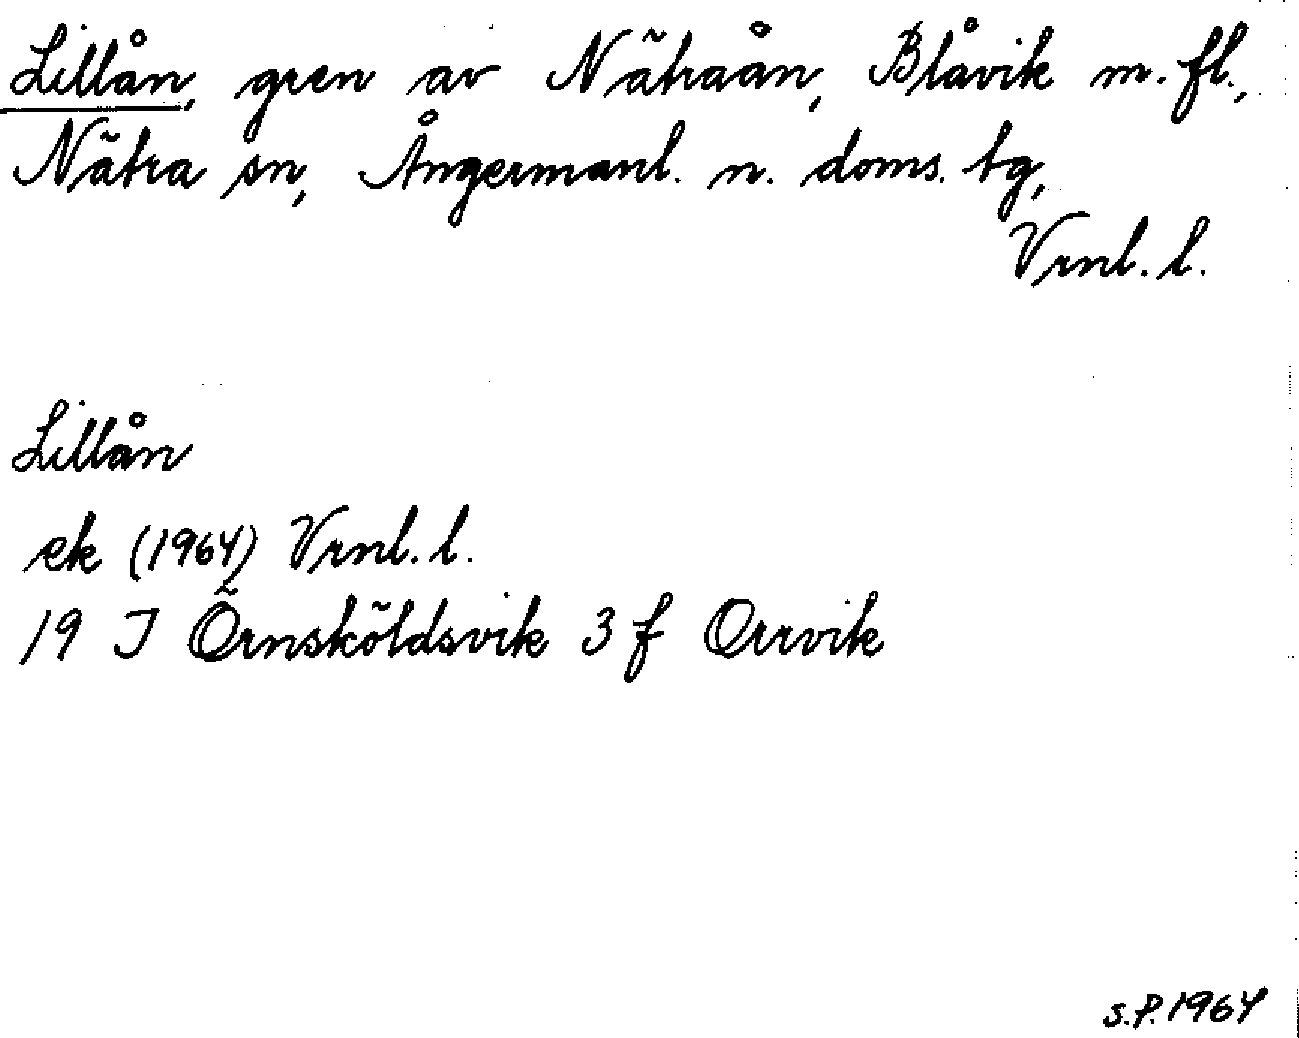 Lillån, gren av Nätraån, Blåvik m. fl.,
Nätra sn, Ångermanl. n. doms. tg,
Vrnl. l.
Lillån
ek (1964) Vrnl. l.
19 J Örnsköldsvik 3 f Orrvik
S.P. 1964